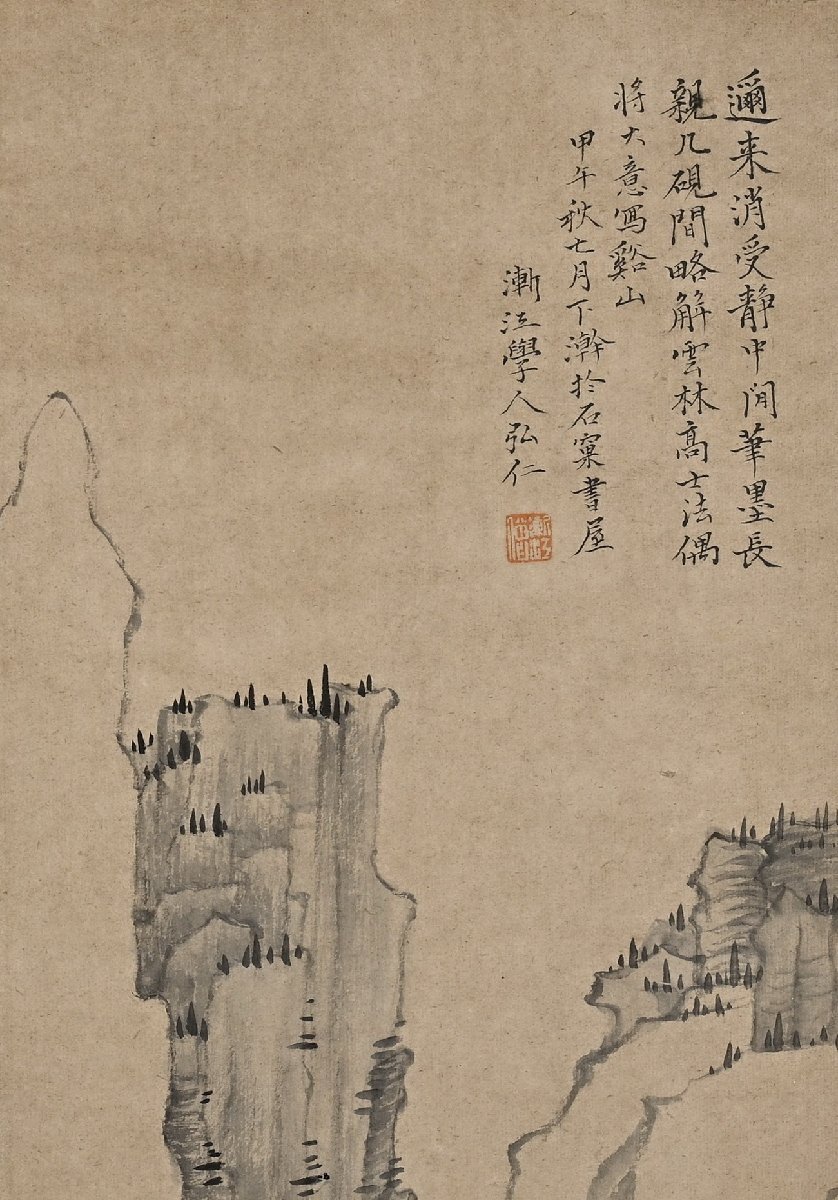 邇来消受静中閒筆墨長
親几硯間略解雲林高士法偶
将大意寫谿山
甲午秋七月下澣於石窠書屋
漸江學人弘仁